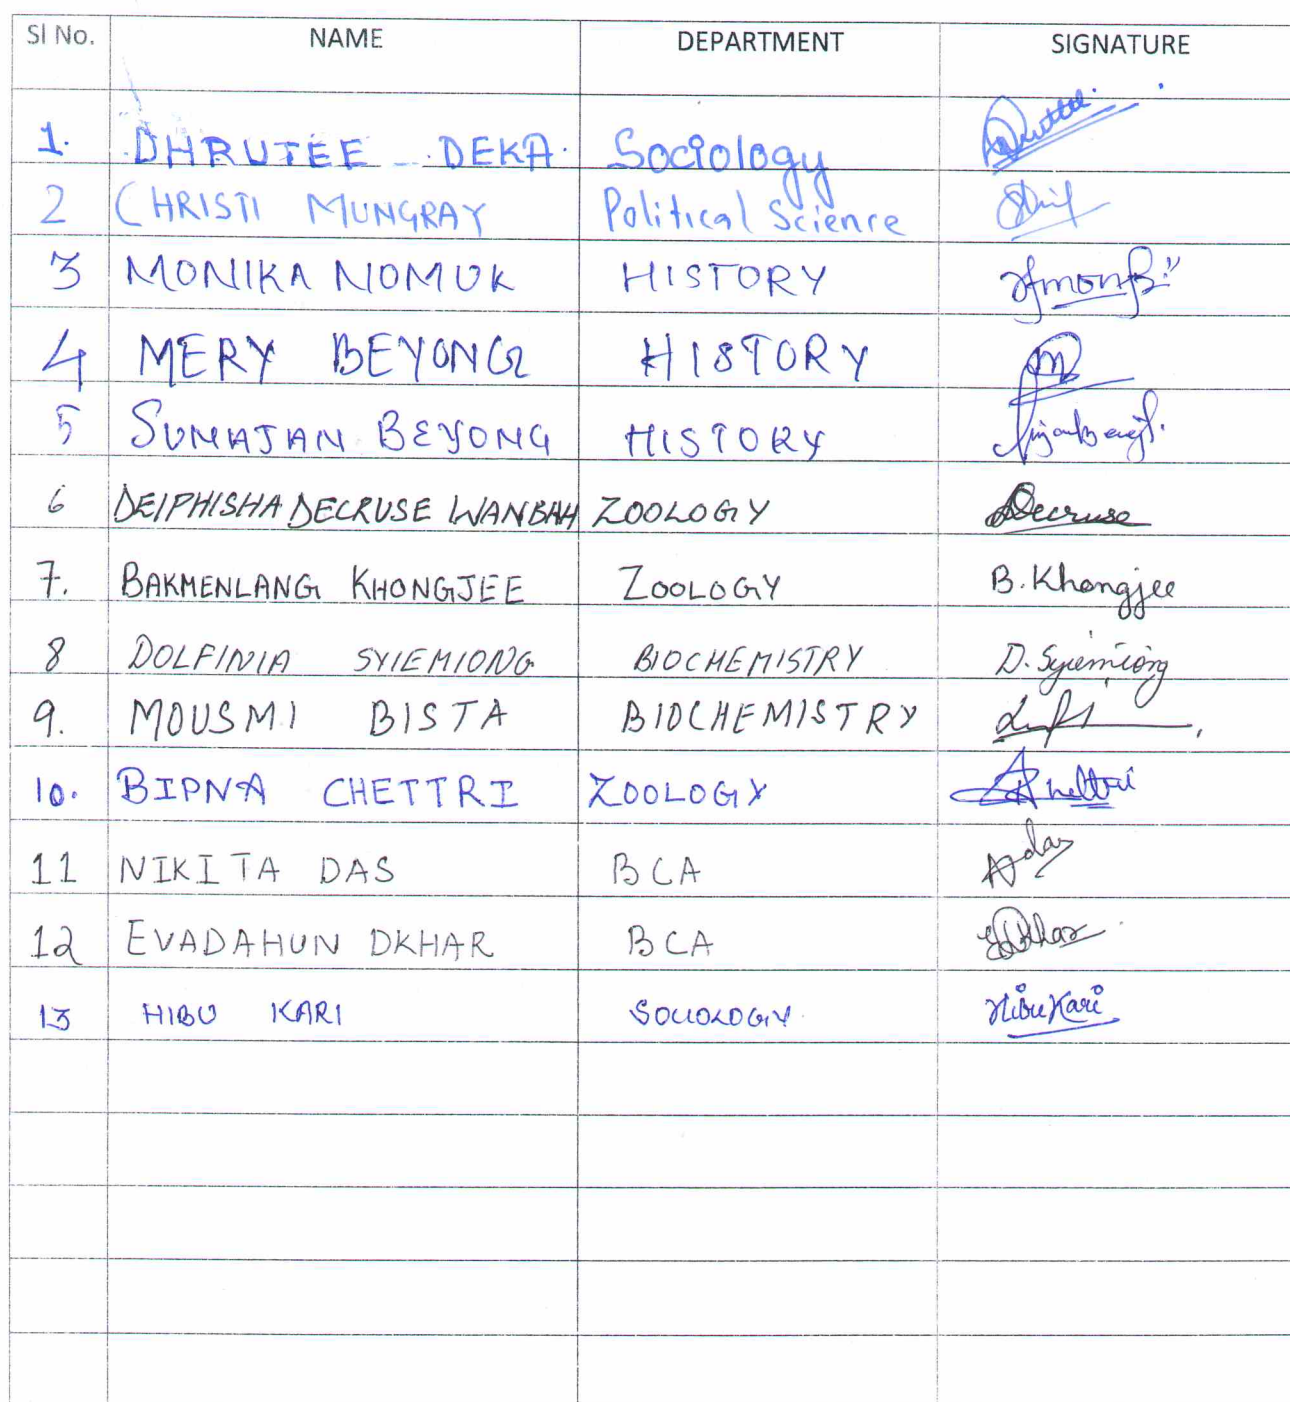 Sl No. NAME DEPARTMENT SIGNATURE
1. DHRUTEE DEKA. Sociology
2 CHRISTI MUNGRAY Political Science
3 MONIKA NOMUK HISTORY
4 MERY BEYONG HISTORY
5 SUNAJAN BEYONG HISTORY
6 DEIPHISHA DECRUSE WANBAH ZOOLOGY Decruse
7. BAKMENLANG KHONGJEE ZOOLOGY B. Khongjee
8 DOLFINIA SYIEMIONG BIOCHEMISTRY D. Syiemiong
9. MOUSMI BISTA BIOCHEMISTRY
10. BIPNA CHETTRI ZOOLOGY
11 NIKITA DAS BCA
12 EVADAHUN DKHAR BCA
13 HIBU KARI SOCIOLOGY Hibu Kari